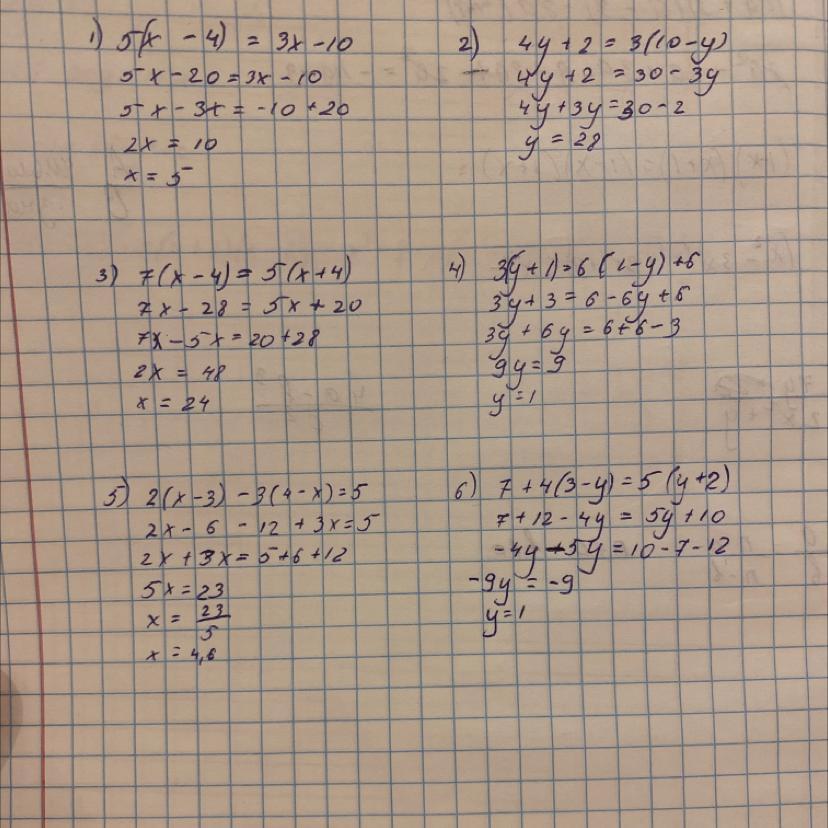 1) 5(x - 4) = 3x - 10
5x - 20 = 3x - 10
5x - 3x = -10 + 20
2x = 10
x = 5
2) 4y + 2 = 3(10 - y)
4y + 2 = 30 - 3y
4y + 3y = 30 - 2
y = 28
3) 7(x - 4) = 5(x + 4)
7x - 28 = 5x + 20
7x - 5x = 20 + 28
2x = 48
x = 24
4) 3(y + 1) = 6(1 - y) + 6
3y + 3 = 6 - 6y + 6
3y + 6y = 6 + 6 - 3
9y = 9
y = 1
5) 2(x - 3) - 3(4 - x) = 5
2x - 6 - 12 + 3x = 5
2x + 3x = 5 + 6 + 12
5x = 23
x = 23/5
x = 4,6
6) 7 + 4(3 - y) = 5(y + 2)
7 + 12 - 4y = 5y + 10
-4y - 5y = 10 - 7 - 12
-9y = -9
y = 1